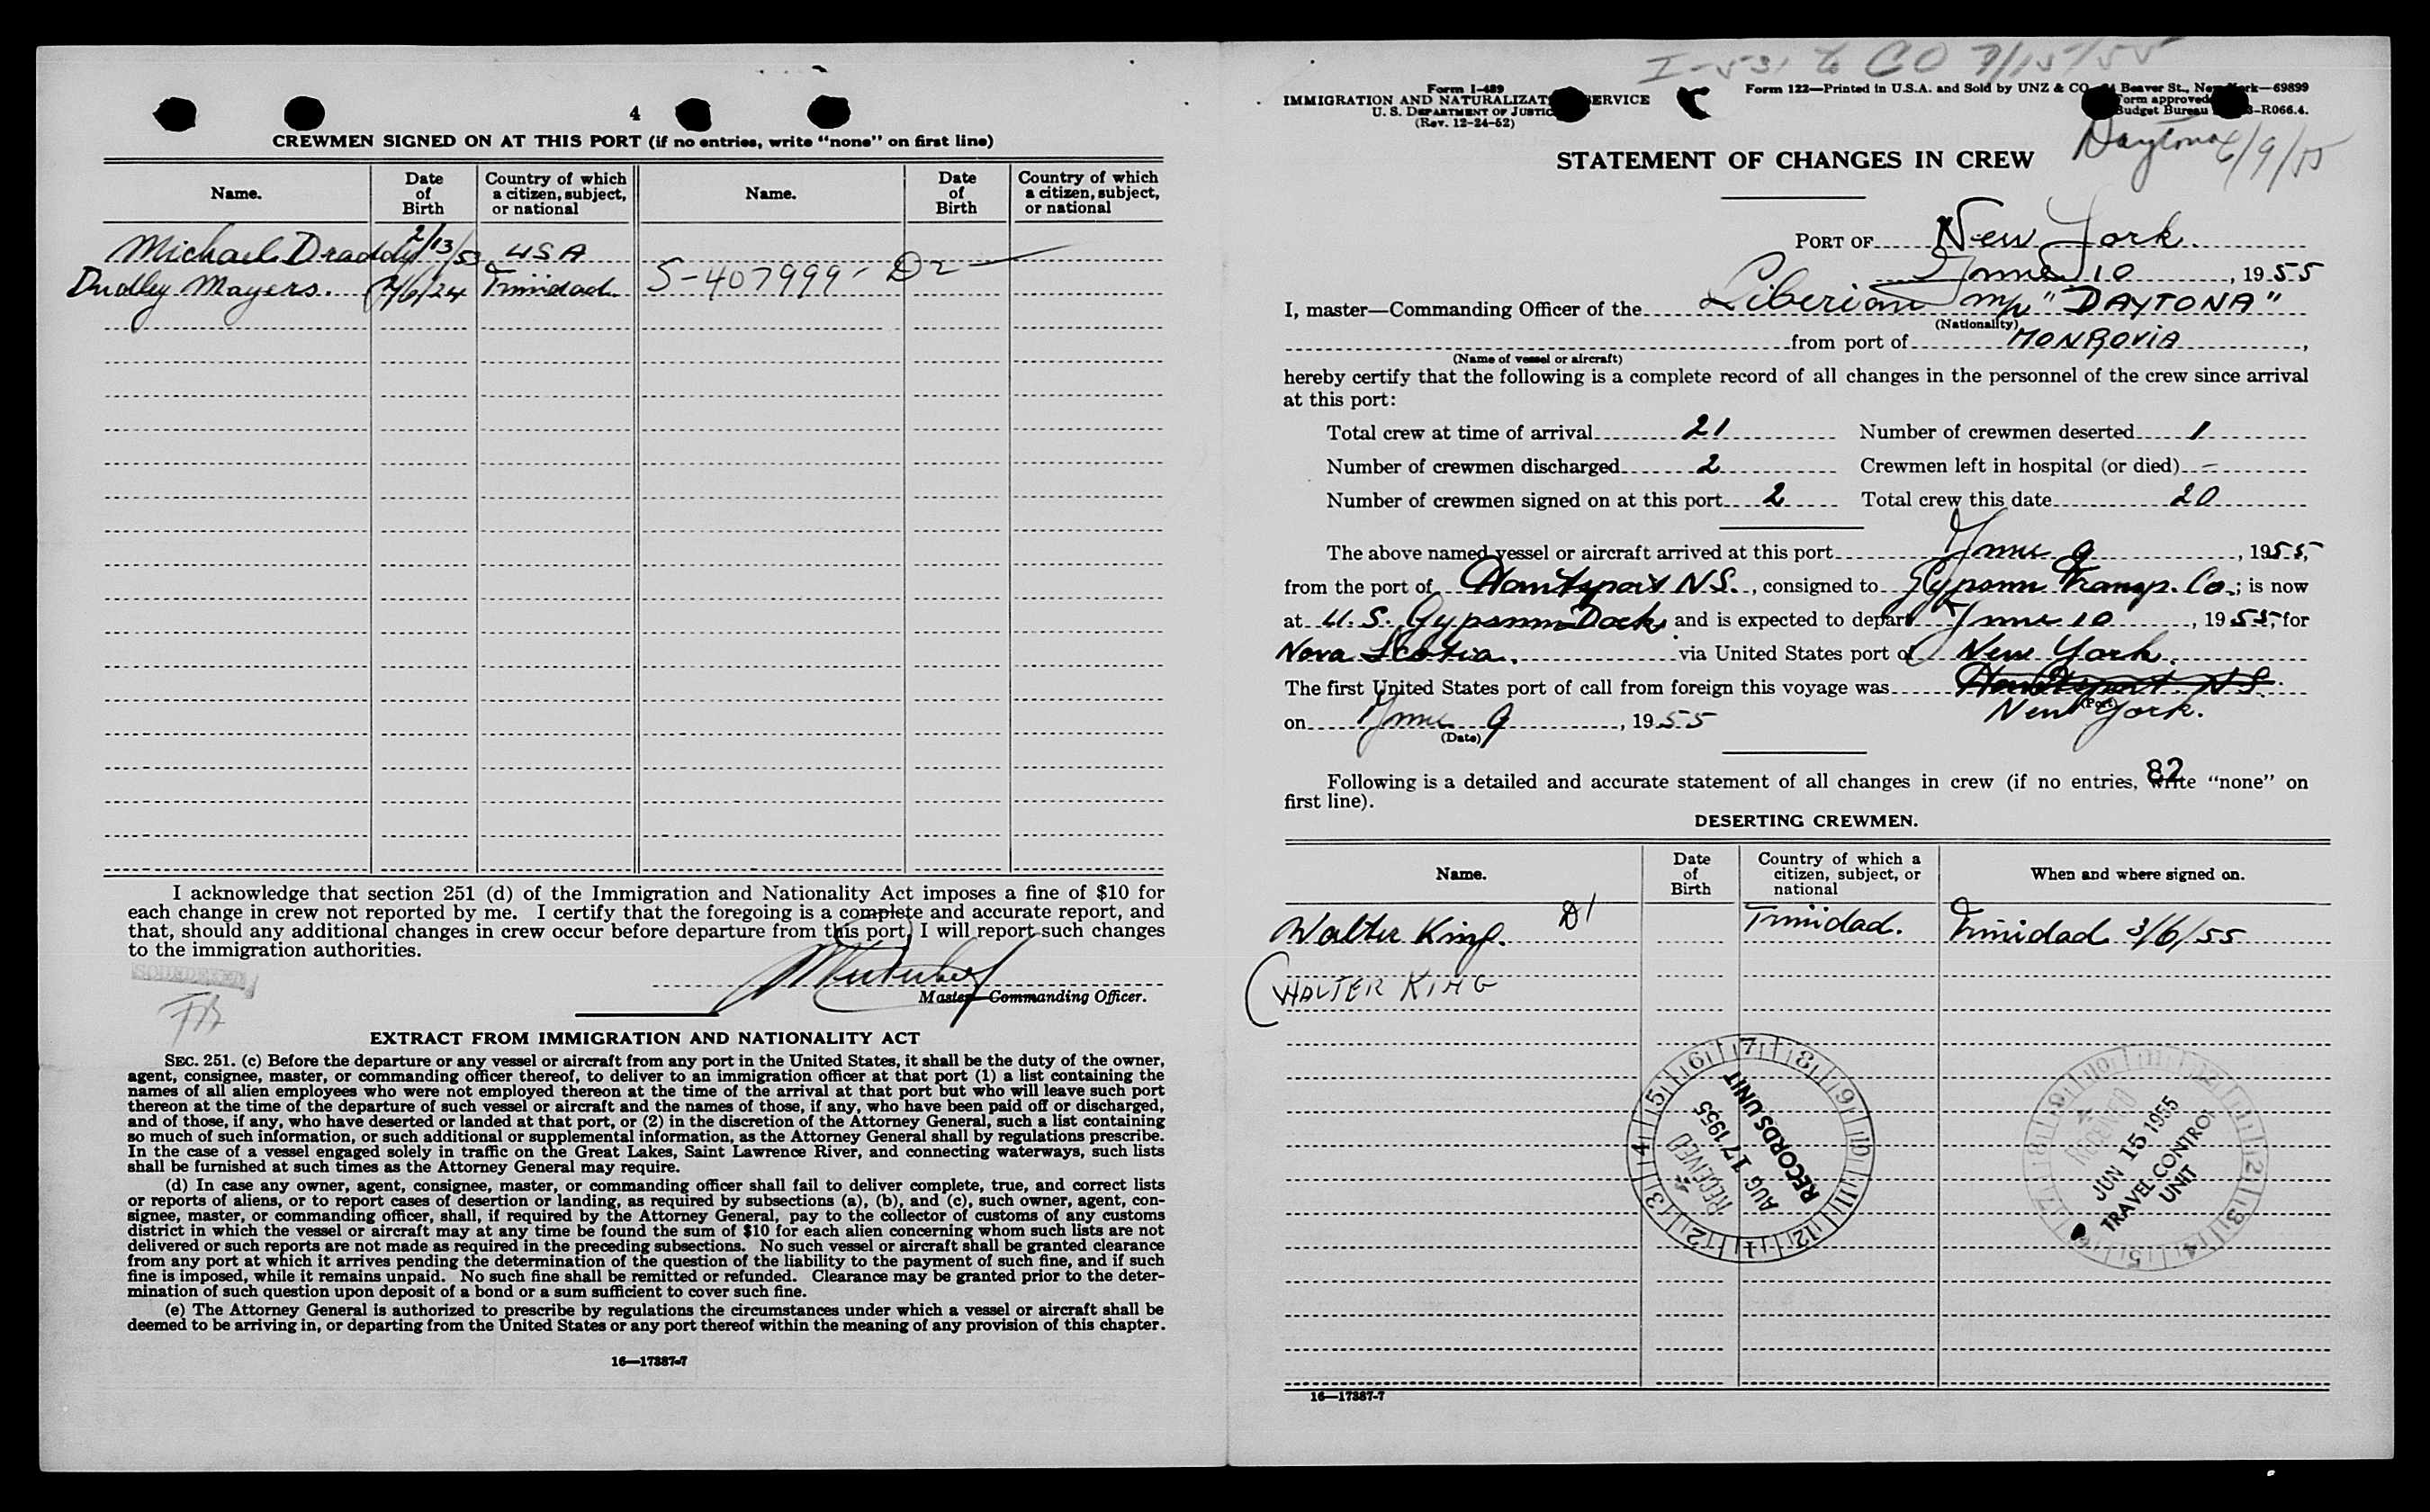 4
CREWMEN SIGNED ON AT THIS PORT (if no entries, write "none" on first line)
Name. Date of Birth Country of which a citizen, subject, or national Name. Date of Birth Country of which a citizen, subject, or national
Michael Draddy 2/13/50 USA
Dudley Mayers. 2/6/24 Trinidad. S-407999- D2
I acknowledge that section 251 (d) of the Immigration and Nationality Act imposes a fine of $10 for
each change in crew not reported by me. I certify that the foregoing is a complete and accurate report, and
that, should any additional changes in crew occur before departure from this port, I will report such changes
to the immigration authorities.
Master—Commanding Officer.
EXTRACT FROM IMMIGRATION AND NATIONALITY ACT
SEC. 251. (c) Before the departure or any vessel or aircraft from any port in the United States, it shall be the duty of the owner,
agent, consignee, master, or commanding officer thereof, to deliver to an immigration officer at that port (1) a list containing the
names of all alien employees who were not employed thereon at the time of the arrival at that port but who will leave such port
thereon at the time of the departure of such vessel or aircraft and the names of those, if any, who have been paid off or discharged,
and of those, if any, who have deserted or landed at that port, or (2) in the discretion of the Attorney General, such a list containing
so much of such information, or such additional or supplemental information, as the Attorney General shall by regulations prescribe.
In the case of a vessel engaged solely in traffic on the Great Lakes, Saint Lawrence River, and connecting waterways, such lists
shall be furnished at such times as the Attorney General may require.
(d) In case any owner, agent, consignee, master, or commanding officer shall fail to deliver complete, true, and correct lists
or reports of aliens, or to report cases of desertion or landing, as required by subsections (a), (b), and (c), such owner, agent, con-
signee, master, or commanding officer, shall, if required by the Attorney General, pay to the collector of customs of any customs
district in which the vessel or aircraft may at any time be found the sum of $10 for each alien concerning whom such lists are not
delivered or such reports are not made as required in the preceding subsections. No such vessel or aircraft shall be granted clearance
from any port at which it arrives pending the determination of the question of the liability to the payment of such fine, and if such
fine is imposed, while it remains unpaid. No such fine shall be remitted or refunded. Clearance may be granted prior to the deter-
mination of such question upon deposit of a bond or a sum sufficient to cover such fine.
(e) The Attorney General is authorized to prescribe by regulations the circumstances under which a vessel or aircraft shall be
deemed to be arriving in, or departing from the United States or any port thereof within the meaning of any provision of this chapter.
16—17387-7
I-531 to CO 7/15/55
Form I-489
IMMIGRATION AND NATURALIZAT SERVICE
U. S. DEPARTMENT OF JUSTIC
(Rev. 12-24-52)
Form 122—Printed in U.S.A. and Sold by UNZ & CO Beaver St., New York—69899
Form approved
Budget Bureau -R066.4.
Daytona 6/9/55
STATEMENT OF CHANGES IN CREW
PORT OF New York.
June 10, 1955
I, master—Commanding Officer of the Liberian m/v "DAYTONA"
(Nationality)
from port of MONROVIA,
(Name of vessel or aircraft)
hereby certify that the following is a complete record of all changes in the personnel of the crew since arrival
at this port:
Total crew at time of arrival 21 Number of crewmen deserted 1
Number of crewmen discharged 2 Crewmen left in hospital (or died) -
Number of crewmen signed on at this port 2 Total crew this date 20
The above named vessel or aircraft arrived at this port June 9, 1955,
from the port of Hantsport N.S., consigned to Gypsum Transp. Co.; is now
at U.S. Gypsum Dock and is expected to depart June 10, 1955, for
Nova Scotia. via United States port of New York.
The first United States port of call from foreign this voyage was Hantsport N.S.
(Port)
New York.
on June 9, 1955
(Date)
Following is a detailed and accurate statement of all changes in crew (if no entries, write "none" on
82
first line).
DESERTING CREWMEN.
Name. Date of Birth Country of which a citizen, subject, or national When and where signed on.
Walter King. D1 Trinidad. Trinidad 3/6/55
(WALTER KING
RECEIVED AUG 17 1955 RECORDS UNIT
RECEIVED JUN 15 1955 TRAVEL CONTROL UNIT
16—17387-7